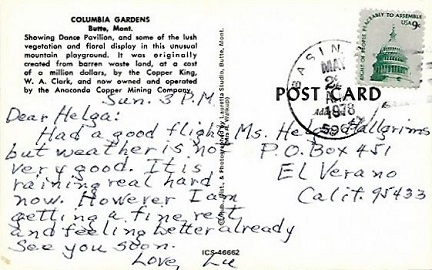 COLUMBIA GARDENS
Butte, Mont.
Showing Dance Pavilion, and some of the lush
vegetation and floral display in this unusual
mountain playground. It was originally
created from barren waste land, at a cost
of a million dollars, by the Copper King,
W. A. Clark, and now owned and operated
by the Anaconda Copper Mining Company.
Sun. 3 P.M.
Dear Helga:
Had a good flight
but weather is not
very good. It is
raining real hard
now. However I am
getting a fine rest
and feeling better already
See you soon.
Love, Lu
ICS-46662
POST CARD
BASIN,
MAY
1978
ASSEMBLE
USA 9c
Ms. Helga Hallgrims
P.O. Box 451
El Verano
Calif. 95433